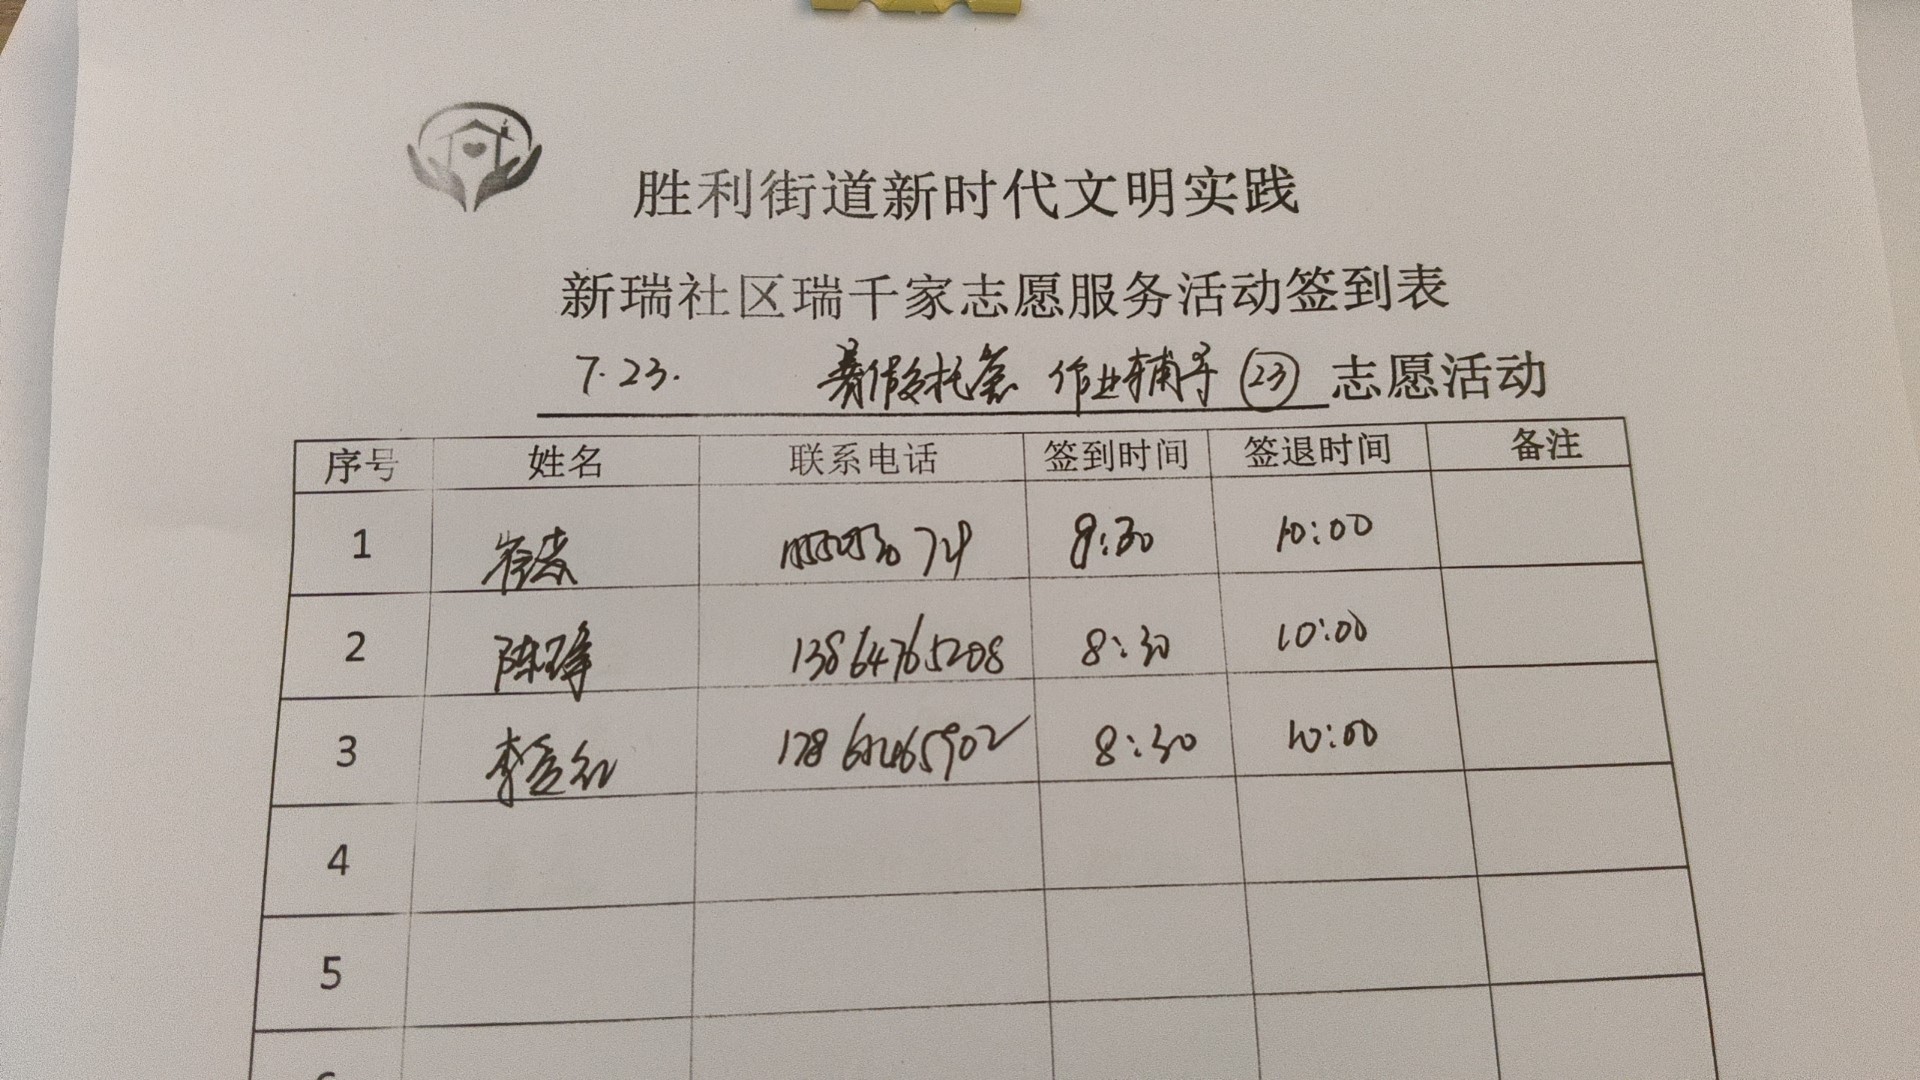 胜利街道新时代文明实践
新瑞社区瑞千家志愿服务活动签到表
7.23. 暑假托管 作业辅导 ㉓ 志愿活动
序号 姓名 联系电话 签到时间 签退时间 备注
1 8:30 10:00
2 陈琤 13864765208 8:30 10:00
3 8:30 10:00
4
5